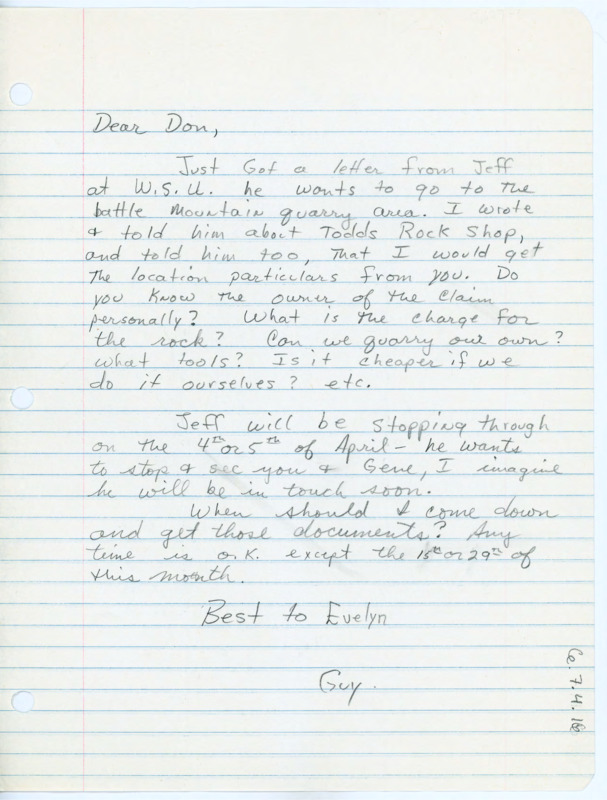 Dear Don,
Just Got a letter from Jeff
at W.S.U. he wants to go to the
battle Mountain quarry area. I wrote
& told him about Todds Rock Shop,
and told him too, That I would get
The location particulars from you. Do
you Know the owner of the Claim
personally? What is the charge for
the rock? Can we quarry our own?
what tools? Is it cheaper if we
do it ourselves? etc.
Jeff will be stopping through
on the 4th or 5th of April - he wants
to stop & see you & Gene, I imagine
he will be in touch soon.
When should I come down
and get those documents? Any
time is o.k. except the 15th or 29th of
this month.
Best to Evelyn
Guy.
6.7.4.18